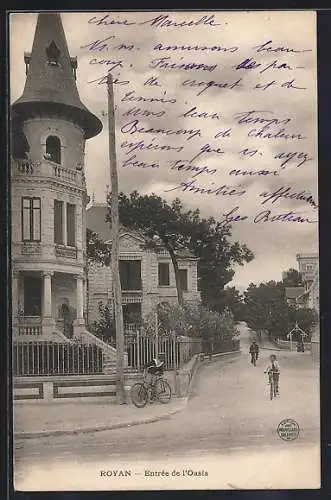 chère Marcelle.
Ns. ns. amusons beau-
coup. Faisons des par-
ties de croquet et de
tennis.
Avons beau temps
Beaucoup de chaleur
espérons que vs. ayez
beau temps aussi
Amitiés affectueuses
ROYAN — Entrée de l'Oasis